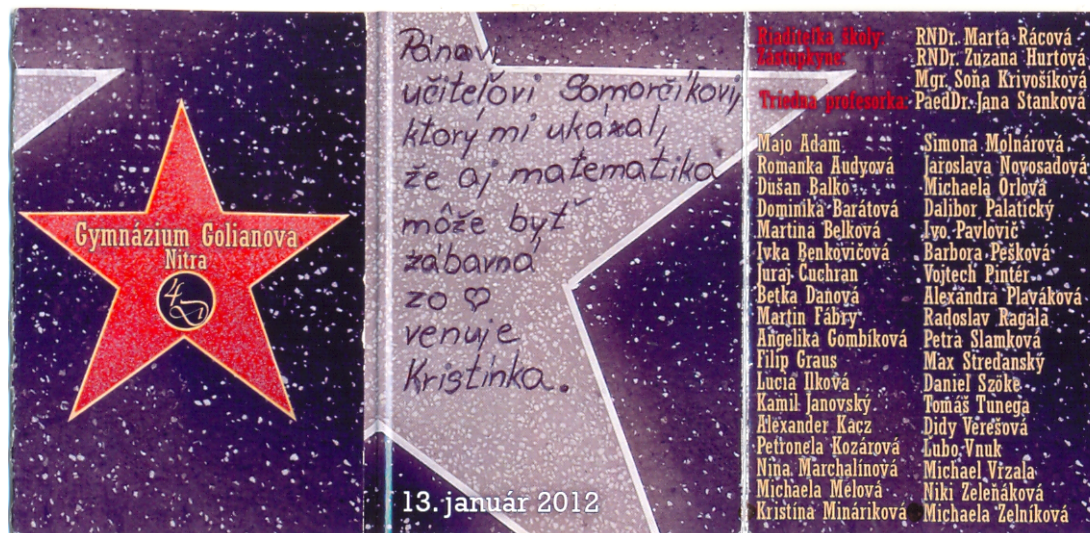 Gymnázium Golianova
Nitra
4D
Pánovi
učiteľovi Gomorčíkovi,
ktorý mi ukázal,
že aj matematika
môže byť
zábavná
zo ♡
venuje
Kristínka.
13. január 2012
Riaditeľka školy: RNDr. Marta Rácová
Zástupkyne: RNDr. Zuzana Hurtová
Mgr. Soňa Krivošíková
Triedna profesorka: PaedDr. Jana Stanková
Majo Adam
Romanka Audyová
Dušan Balko
Dominika Barátová
Martina Belková
Ivka Benkovičová
Juraj Cuchran
Betka Danová
Martin Fábry
Angelika Gombíková
Filip Graus
Lucia Ilková
Kamil Janovský
Alexander Kacz
Petronela Kozárová
Nina Marchalínová
Michaela Mélová
Kristína Mináriková
Simona Molnárová
Jaroslava Novosadová
Michaela Orlová
Dalibor Palatický
Ivo Pavlovič
Barbora Pešková
Vojtech Pintér
Alexandra Plaváková
Radoslav Ragala
Petra Slamková
Max Streďanský
Daniel Szöke
Tomáš Tunega
Didy Verešová
Lubo Vnuk
Michael Vrzala
Niki Zeleňáková
Michaela Zelníková